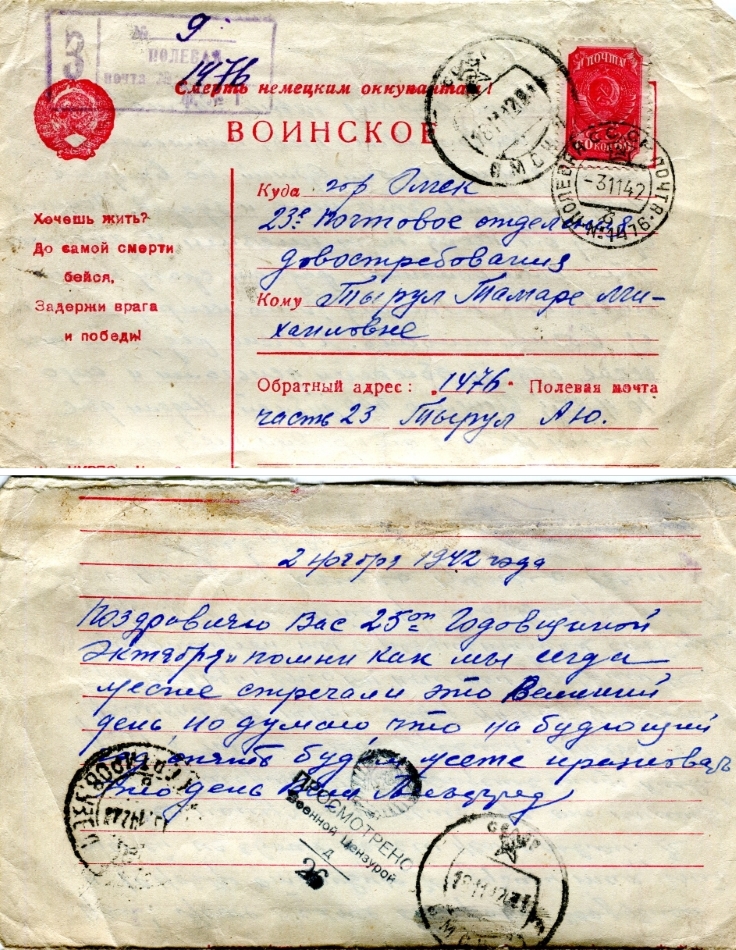 № 9
3
ПОЛЕВАЯ
почта
1476
Смерть немецким оккупантам!
ВОИНСКОЕ
ПОЧТА
СССР
18 11 42
ОМСК
ПОЛЕВАЯ ПОЧТА
-31142
№ 1476
Хочешь жить?
До самой смерти
бейся,
Задержи врага
и победи!
Куда гор Омск
23е Почтовое отделен
довостребования
Кому Тырул Тамаре Ми-
хаиловне
Обратный адрес: "1476" Полевая почта
часть 23 Тырул А Ю.
2 ноября 1942 года
Поздравляю Вас 25ой Годовщиной
Октября и помни как мы
месте стречали это Великий
день но думаю что на будующий
год опять будем месте празновать
это день
ПРОСМОТРЕНО
Военной Цензурой
26
СССР
18 11 42
ОМСК